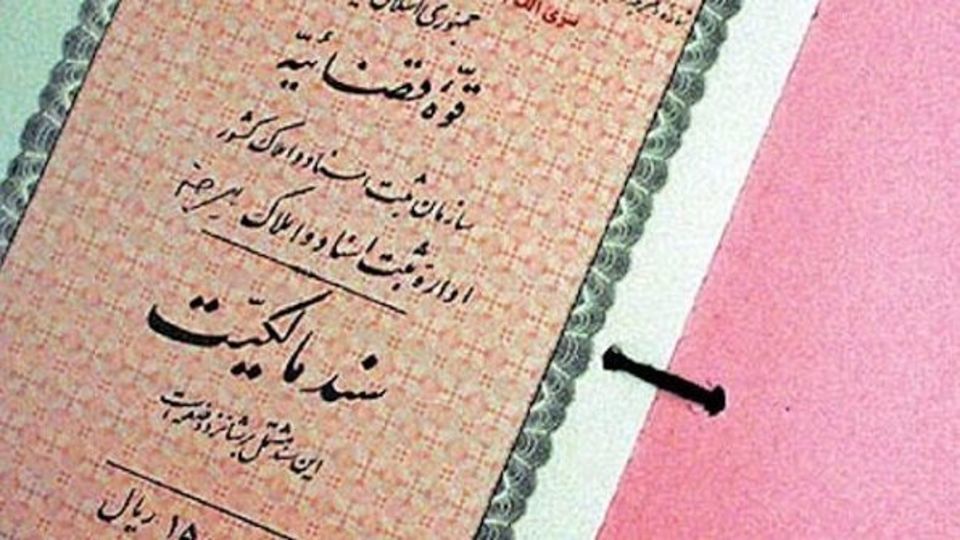 جمهوری اسلامی
قوّه قضائیّه
سازمان ثبت اسناد و املاک کشور
اداره ثبت اسناد و املاک بیرجند
سند مالکیّت
این سند مشتمل بر شانزده صفحه است
۱۵ ریال